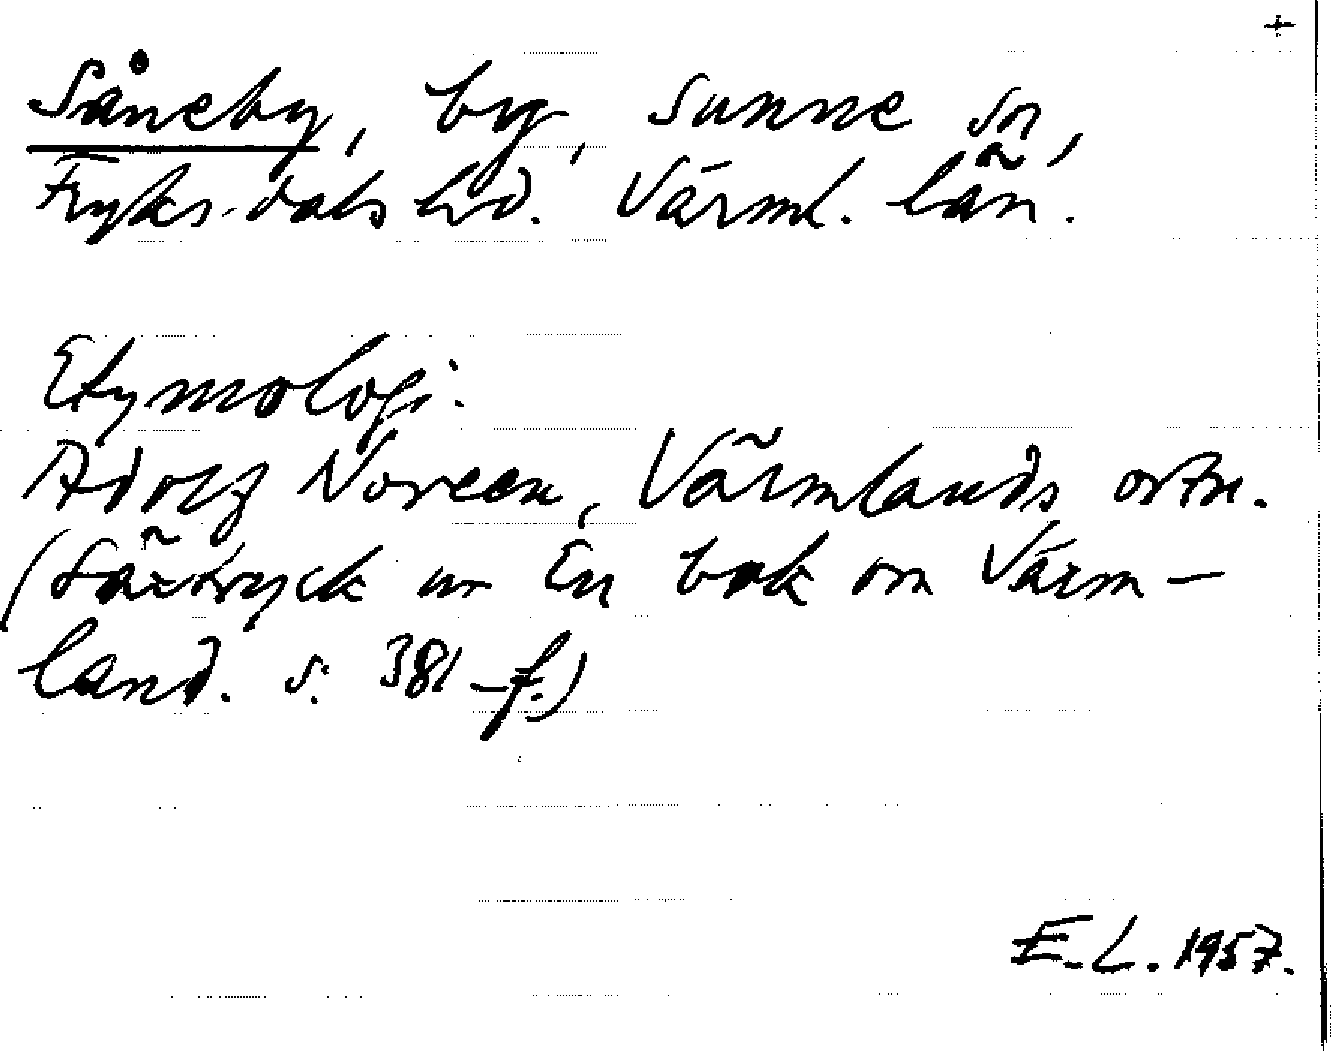 +
Såneby, by, Sunne sn,
Fryksdals hd. Värml. län.
Etymologi.
Adolf Noreen, Värmlands ortn.
(Särtryck ur En bok om Värm-
land. s. 381-f.)
E.L. 1957.